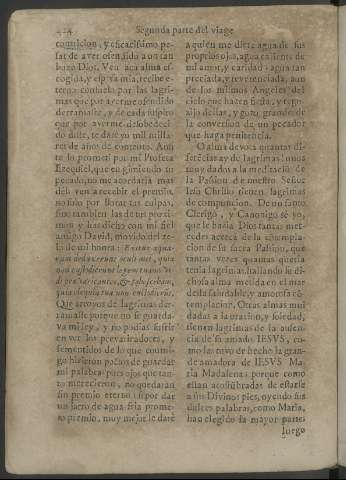 424 Segunda parte del viage
contricion, y eficacissimo pe-
sar de aver ofendido a un tan
buen Dios. Ven acá alma es-
cogida, y esposa mia, recibe e-
terno consuelo por las lagri-
mas que por averme ofendido
derramaste, y de cada suspiro
que por averme desobedeci-
do diste, te daré yo mil milla-
res de años de contento. Aun
te lo prometi por mi Profeta
Ezequiel, que en gimiendo tu
pecado, no me acordaria mas
del: ven a recebir el premio,
no solo por llorar tus culpas,
sino tambien las de tus proxi-
mos y has dicho con mi fiel
amigo David, movido del ze-
lo de mi honra: Exitus aqua-
rum deduxerunt oculi mei, quia
non custodierunt legem tuam. Vi-
di prevaricantes, & tabescebam,
quia eloquia tua non custodierunt.
Que arroyos de lagrimas der-
ramaste porque no se guarda-
va mi ley, y no podias sufrir
en ver los prevaricadores, y
sementidos de lo que conmi-
go hizieron pactos de guardar
mi palabra: pues ojos que tan-
to merecieron, no quedarán
sin premio eterno: si por dar
un jarro de agua fria prome-
to premio, muy mejor le daré
a quien me diere agua de sus
proprios ojos, agua caliente de
mi amor, y caridad: agua tan
preciada, y reverenciada, aun
de los mismos Angeles del
cielo que hazen fiesta, y rego-
zijo della, y gozo grande de
la conversion de un pecador
que haga penitencia.
O alma devota quantas di-
ferencias ay de lagrimas! unos
muy dados a la meditacion de
la Passion de nuestro Señor
Iesu Christo tienen lagrimas
de compuncion. De un santo
Clerigo, y Canonigo sé yo,
que le hazia Dios tantas mer-
cedes acerca de la contempla-
cion de su sacra Passion, que
tantas veces quantas queria
tenia lagrimas, hallando su di-
chosa alma metida en el mar
desta saludable, y amorosa cō-
templacion. Otras almas muy
dadas a la oracion, y soledad,
tienen lagrimas de la ausen-
cia de su amado IESVS, co-
mo las tuvo de hecho la gran-
de amadora de IESVS Ma-
ria Madalena: porque como
estan acostūbradas de estarse
a sus Divinos pies, oyendo sus
dulces palabras, como Maria,
han elegido la mayor parte:
luego